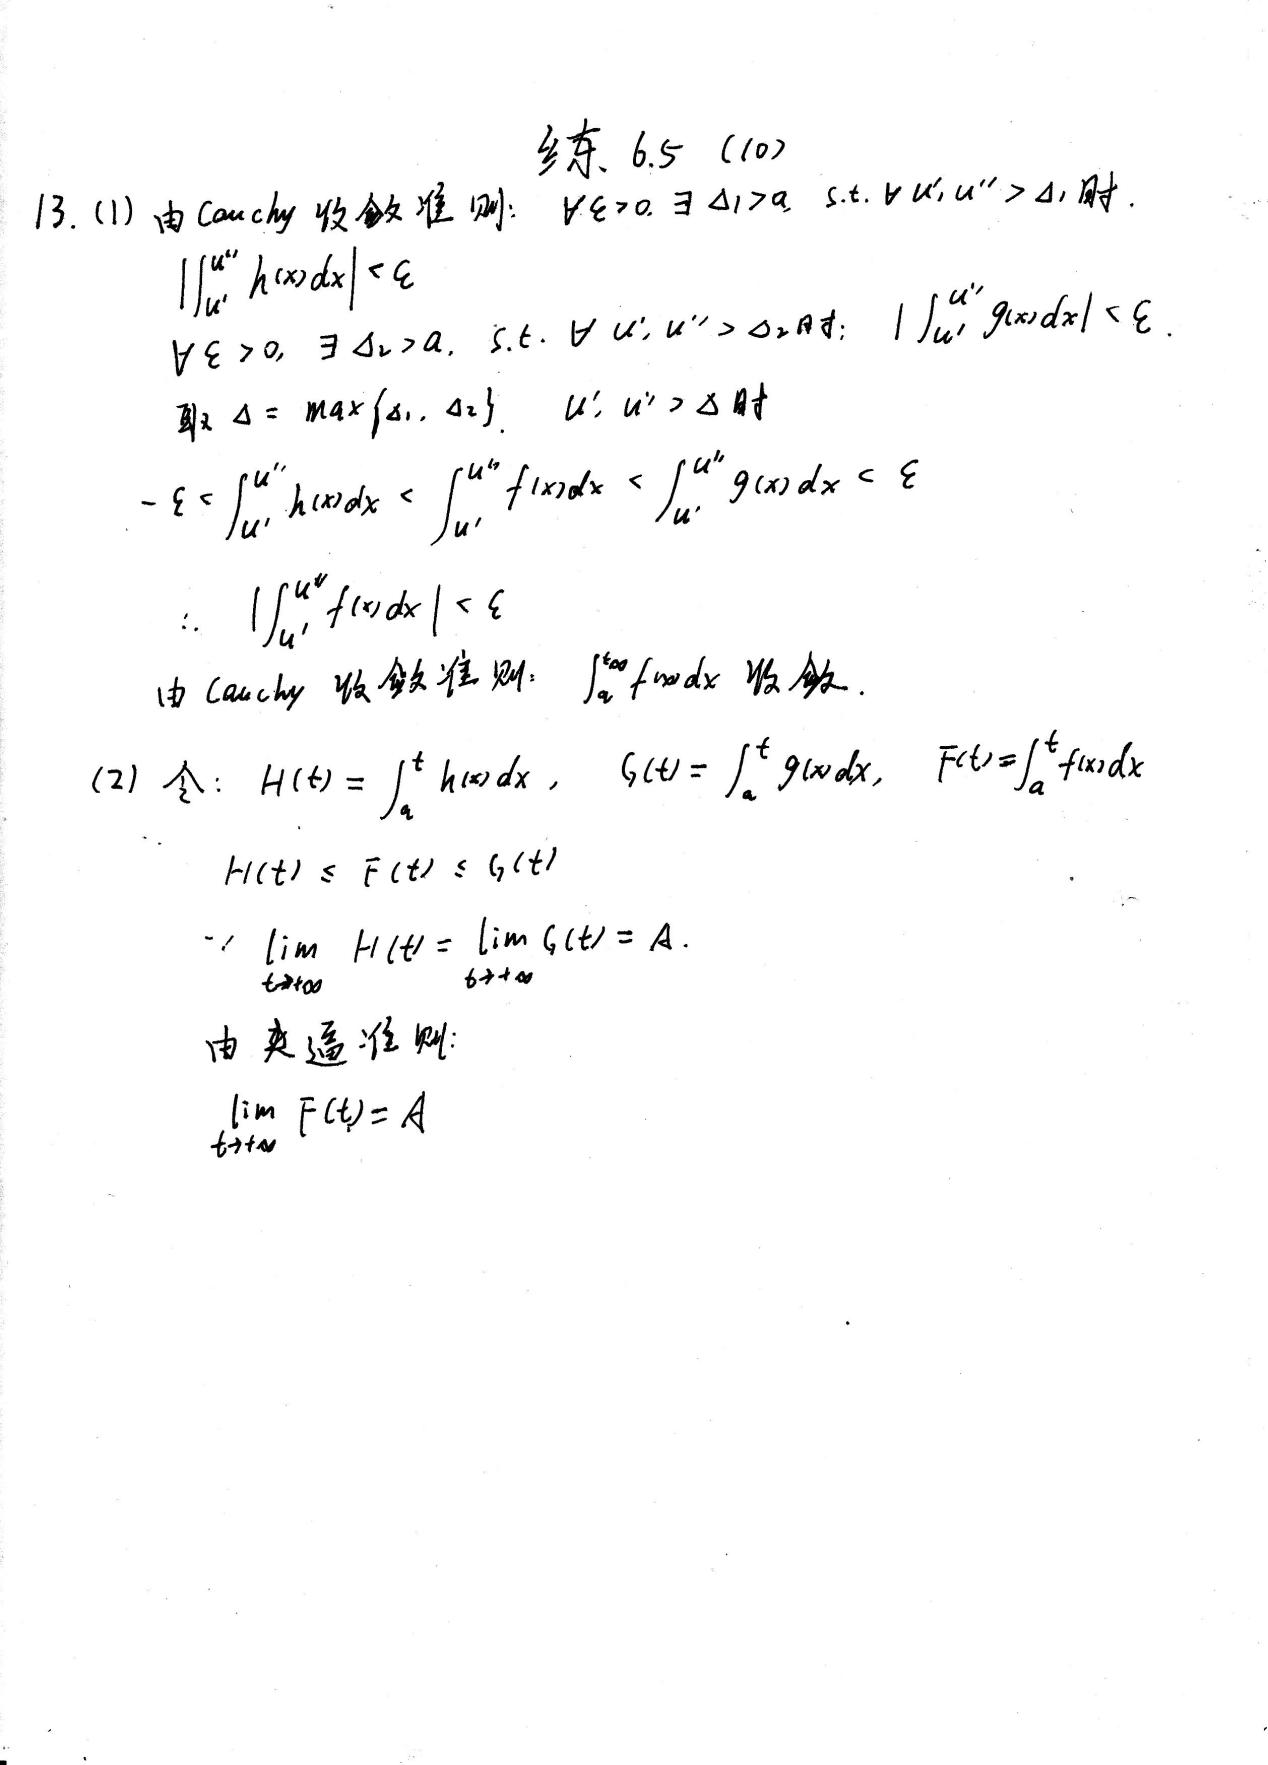 练 6.5 (10)
13. (1) 由 Cauchy 收敛准则: ∀ε>0. ∃ Δ₁>a, s.t. ∀ u', u'' > Δ₁ 时.
|∫_{u'}^{u''} h(x)dx| < ε
∀ε>0, ∃ Δ₂>a, s.t. ∀ u', u'' > Δ₂时: |∫_{u'}^{u''} g(x)dx| < ε.
取 Δ = max{Δ₁, Δ₂}. u', u'' > Δ 时
-ε < ∫_{u'}^{u''} h(x)dx < ∫_{u'}^{u''} f(x)dx < ∫_{u'}^{u''} g(x)dx < ε
∴ |∫_{u'}^{u''} f(x)dx| < ε
由 Cauchy 收敛准则: ∫_a^{+∞} f(x)dx 收敛.
(2) 令: H(t) = ∫_a^t h(x)dx, G(t) = ∫_a^t g(x)dx, F(t) = ∫_a^t f(x)dx
H(t) ≤ F(t) ≤ G(t)
∵ lim_{t→+∞} H(t) = lim_{t→+∞} G(t) = A.
由夹逼准则:
lim_{t→+∞} F(t) = A